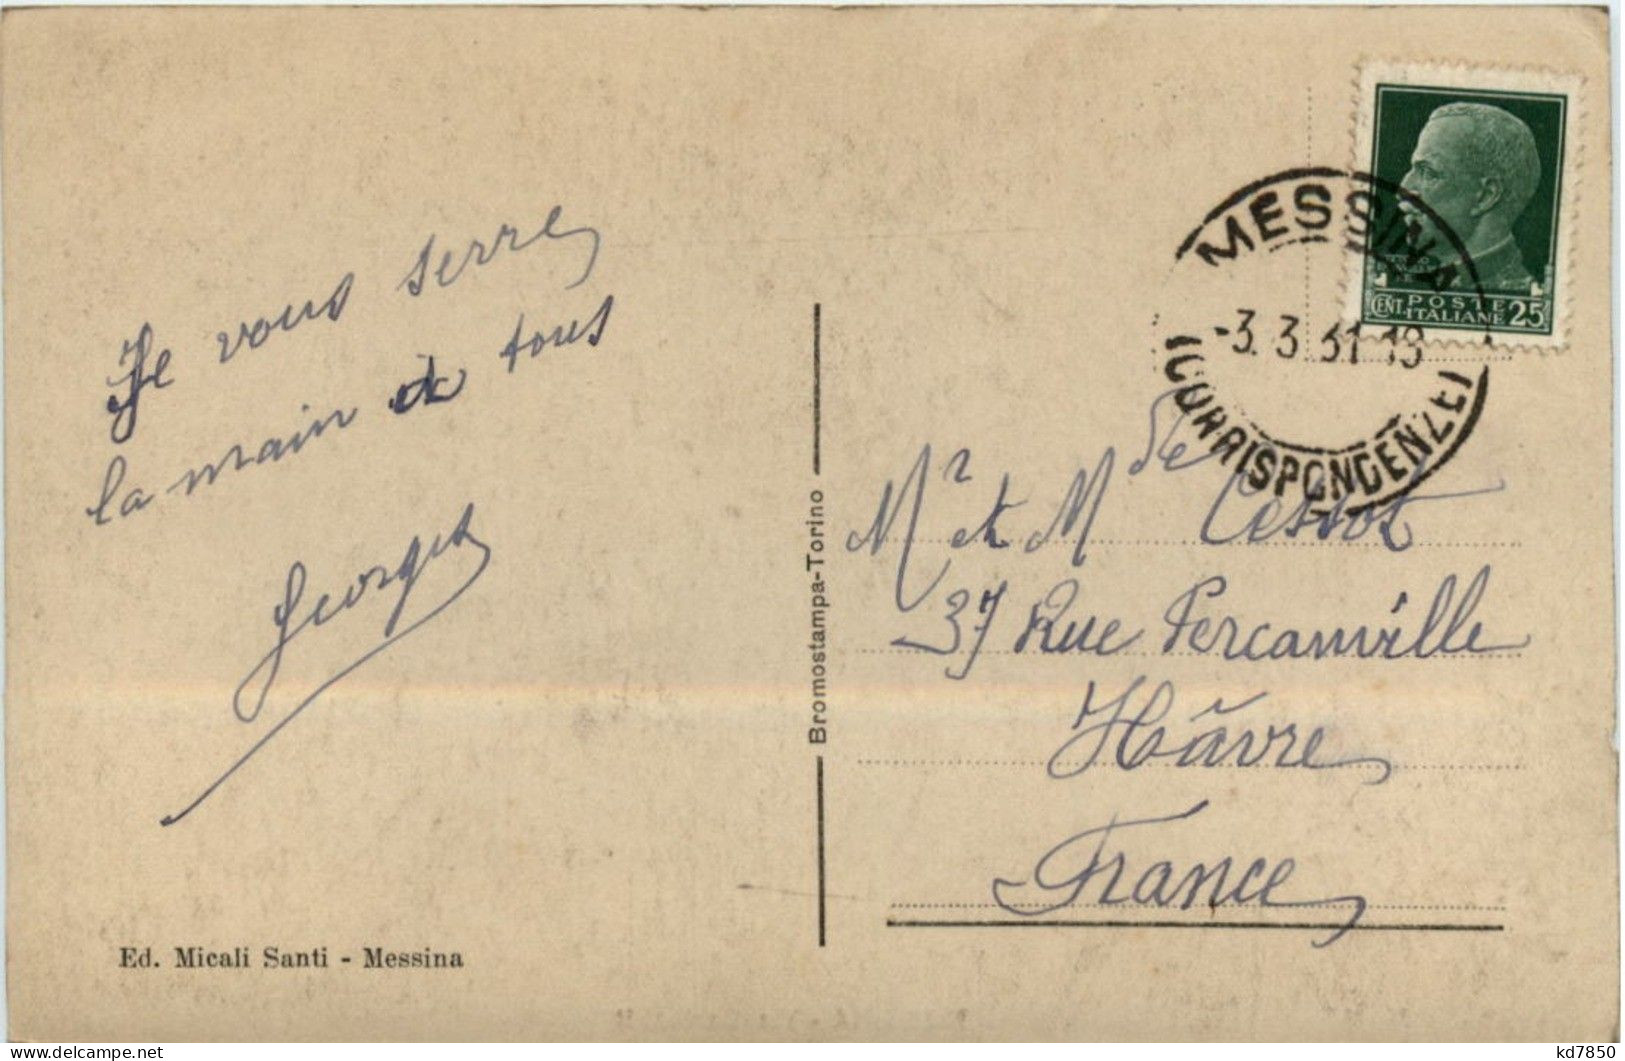 Je vous serre
la main à tous
Georges
Ed. Micali Santi - Messina
Bromostampa-Torino
MESSINA
-3. 3 31 18
(CORRISPONDENZE)
CENT. POSTE ITALIANE 25
Mr et Mde Cessot
37 Rue Percanville
Hâvre
France
kd7850